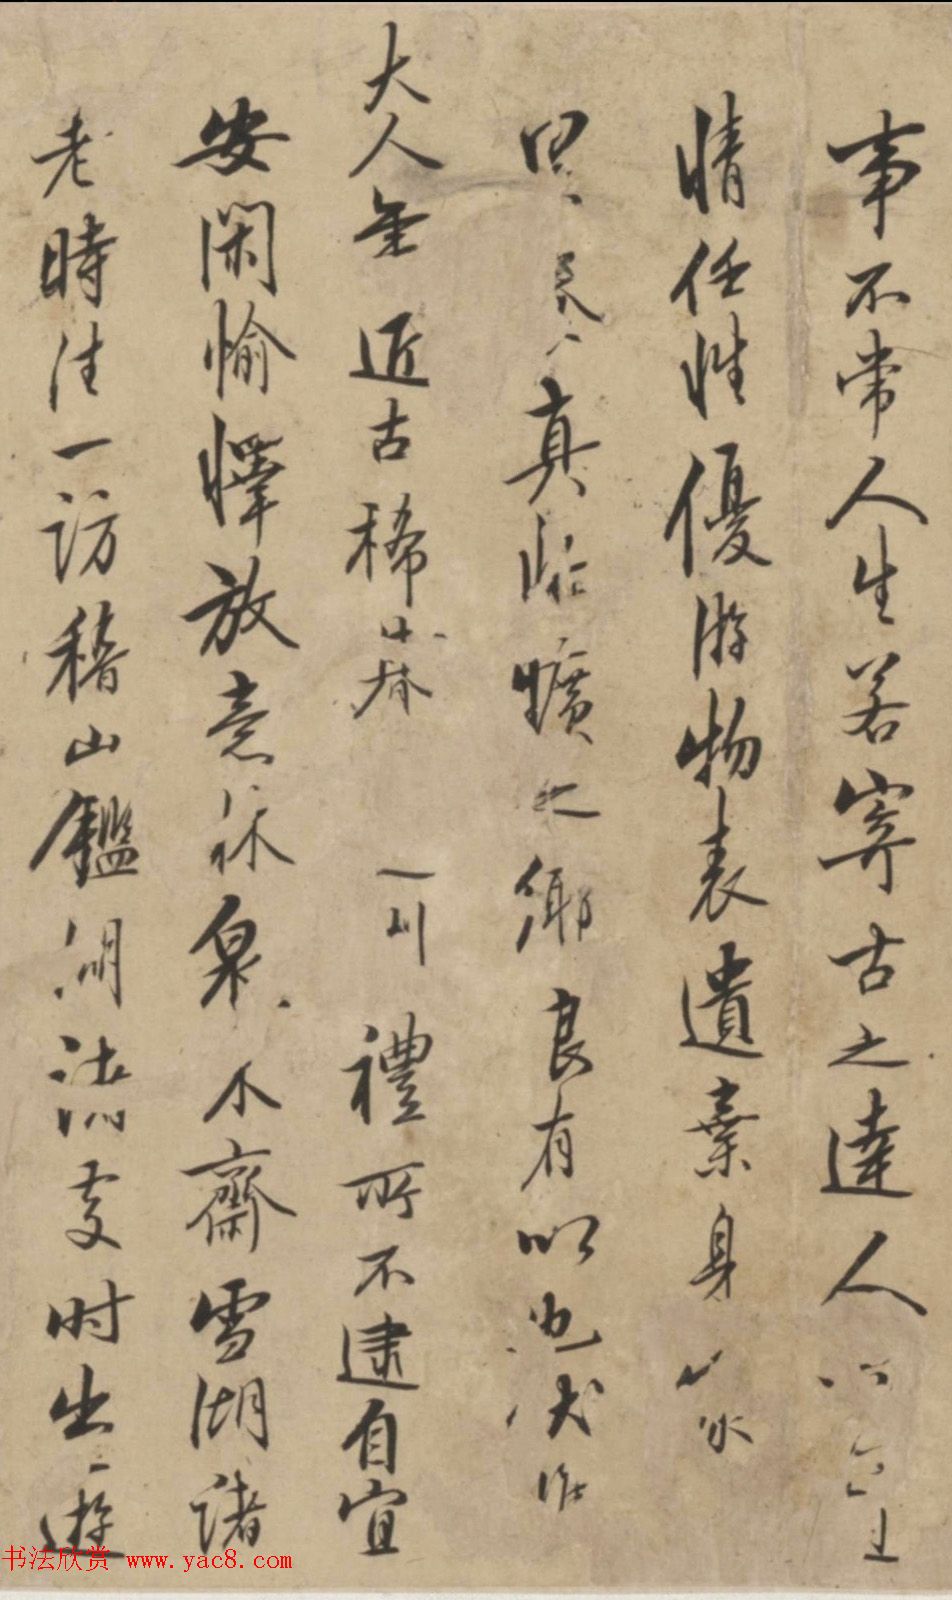 事不常人生若寄古之達人
情任性優游物表遺棄身
真恬曠之鄉良有以也伏惟
大人年近古稀 禮所不逮自宜
安閑愉懌放意林泉木齋雪湖諸
老時往一訪稽山鑑湖諸處时出遊
书法欣赏 www.yac8.com